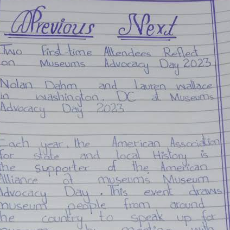 Previous Next
Two First-time Attendees Reflect
on Museums Advocacy Day 2023
Nolan Dahm and Lauren Wallace
in Washington, DC at Museums
Advocacy Day 2023
Each year, the American Association
for state and local History is
the supporter of the American
Alliance of museums Museums
Advocacy Day. This event draws
museum people from around
the country to speak up for